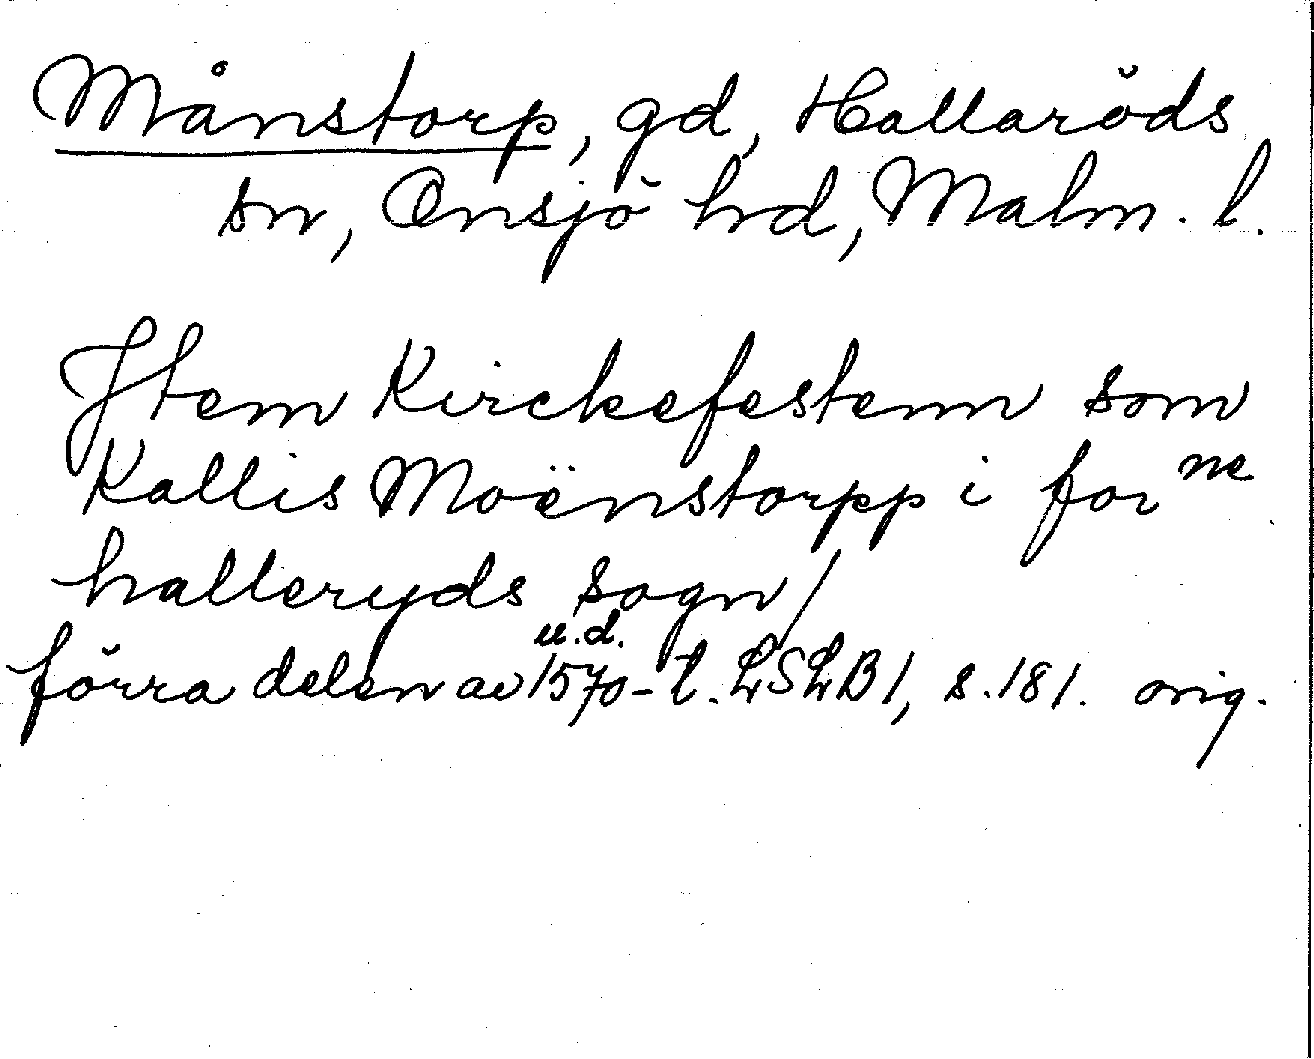 Månstorp, gd, Hallaröds
sn, Onsjö hd, Malm. l.
Item Kirckefestenn som
Kallis Moënstorpp i for ne
halleryds sogn/
u.d.
förra delen av 1570-t. LSLB1, s. 181. orig.